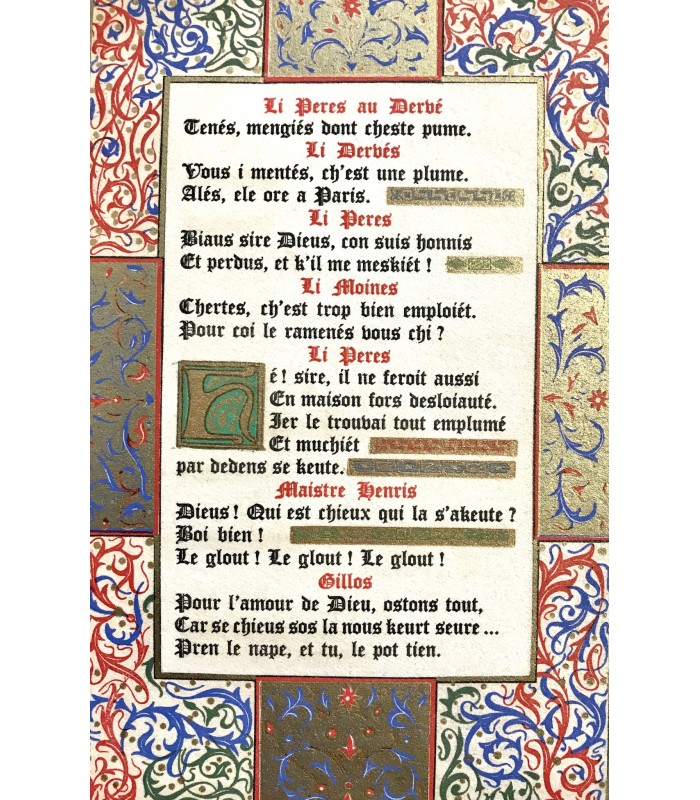 Li Peres au Dervé
Tenés, mengiés dont cheste pume.
Li Dervés
Vous i mentés, ch'est une plume.
Alés, ele ore a Paris.
Li Peres
Biaus sire Dieus, con suis honnis
Et perdus, et k'il me meskiét !
Li Moines
Chertes, ch'est trop bien emploiét.
Pour coi le ramenés vous chi ?
Li Peres
Hé! sire, il ne feroit aussi
En maison fors desloiauté.
Ier le trouvai tout emplumé
Et muchiét
par dedens se keute.
Maistre Henris
Dieus ! Qui est chieux qui la s'akeute ?
Boi bien !
Le glout ! Le glout ! Le glout !
Gillos
Pour l'amour de Dieu, ostons tout,
Car se chieus sos la nous keurt seure ...
Pren le nape, et tu, le pot tien.